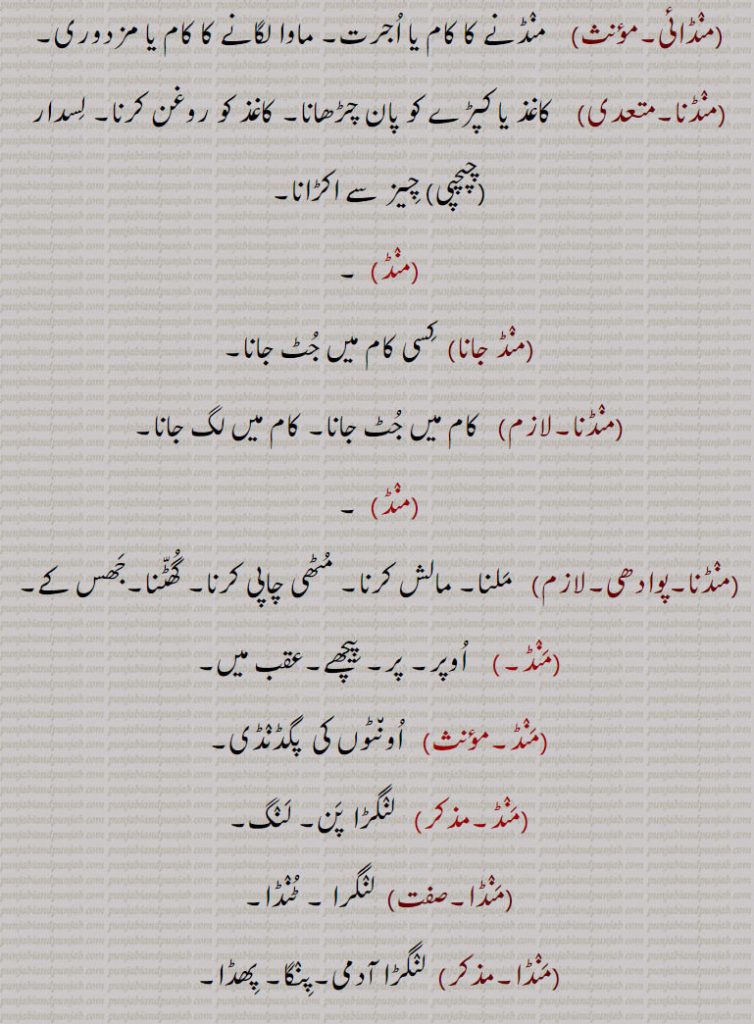 (منْڈائی۔مؤنث) منْڈنے کا کام یا اُجرت۔ ماوا لگانے کا کام یا مزدوری۔
(منْڈنا۔متعدی) کاغذ یا کپڑے کو پان چڑھانا۔ کاغذ کو روغن کرنا۔ لِسدار
(چِپچپی) چیز سے اکڑانا۔
(منْڈ) ۔
(منْڈ جانا) کِسی کام میں جُٹ جانا۔
(منْڈنا۔لازم) کام میں جُٹ جانا۔ کام میں لگ جانا۔
(منْڈ) ۔
(منْڈنا۔پوادھی۔لازم) مَلنا۔ مالش کرنا۔ مُٹھی چاپی کرنا۔ گُھٹّنا۔جَھس کے۔
(مَنْڈ۔) اُوپر۔ پر۔ پِیچھے۔عقب میں۔
(مَنْڈ۔مؤنث) اُونْٹوں کی پگڈنْڈی۔
(مَنْڈ۔مذکر) لنْگڑا پَن۔ لَنْگ۔
(مَنْڈا۔صفت) لنْگرا ۔ ٹُنْڈا۔
(مَنْڈا۔مذکر) لنْگڑا آدمی۔پِنْگا۔ پِھڈا۔
punjabiandpunjab.com